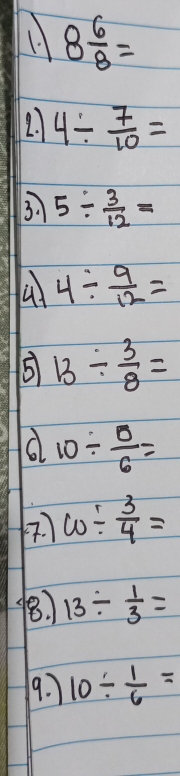 1.) 8 6/8 =
2.) 4 ÷ 7/10 =
3.) 5 ÷ 3/12 =
4.) 4 ÷ 9/12 =
5) 13 ÷ 3/8 =
6) 10 ÷ /6 =
7.) ÷ 3/4 =
8.) 13 ÷ 1/3 =
9.) 10 ÷ 1/6 =